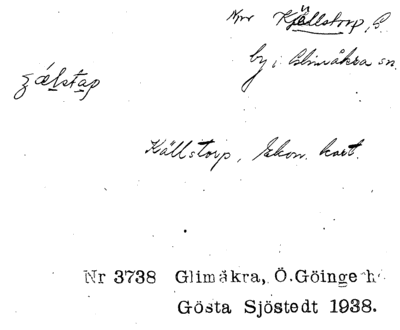 Kjällstorp, B.
by i Glimåkra sn.
Källstorp, Ekon. kart.
Nr 3738 Glimåkra, Ö.Göinge h
Gösta Sjöstedt 1938.